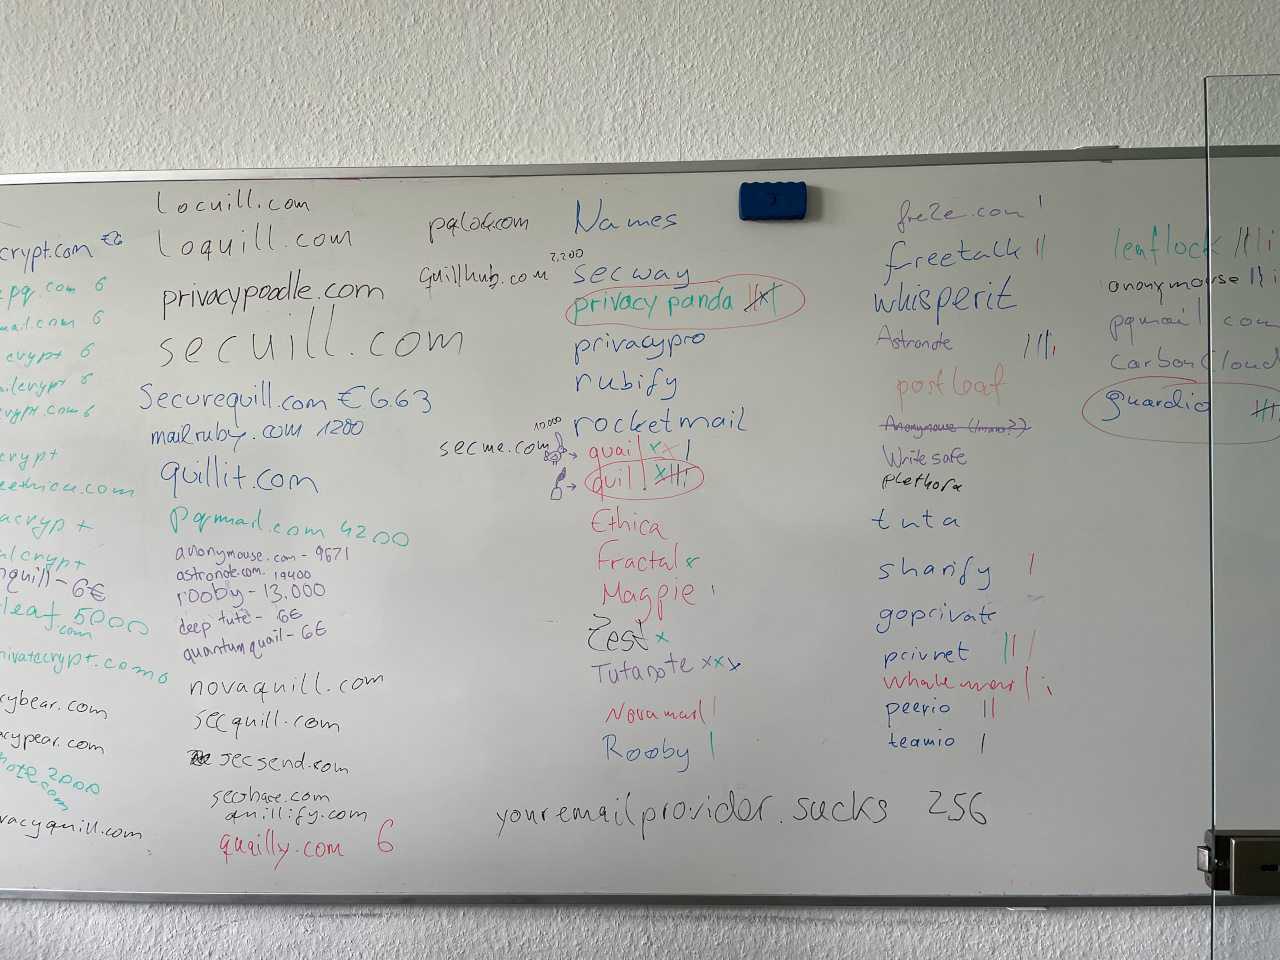 crypt.com €6
pq.com 6
mail.com 6
crypt 6
ailcrypt 6
crypt.com 6
crypt
eethica.com
acrypt
alcrypt
quill - 6€
leaf.com 5000
rivatecrypt.com 6
cybear.com
acypear.com
note.com 2000
vacyquill.com
Locuill.com
loquill.com
privacypoodle.com
secuill.com
Securequill.com €6.63
mailruby.com 1200
quillit.com
Pqmail.com 4200
anonymouse.com - 9671
astronote.com - 19400
rooby - 13,000
deep tute - 6€
quantumquail - 6€
novaquill.com
secquill.com
secsend.com
secbase.com
quillify.com
quailly.com 6
pqlock.com
quillhub.com 2,200
secme.com 10000
Names
secway
privacy panda
privacypro
rubify
rocketmail
quail xx |
quil
Ethica
Fractal x
Magpie |
Zest x
Tutanote xxx
Novamail |
Rooby |
youremailprovider.sucks 256
freeze.com |
freetalk ||
whisperit
Astronote ||||
postleaf
Write safe
plethora
tuta
sharify |
goprivate
privnet |||
whalemail |
peerio ||
teamio |
leaflock ||||
anonymouse |||
pqmail com
CarbonCloud
guardio